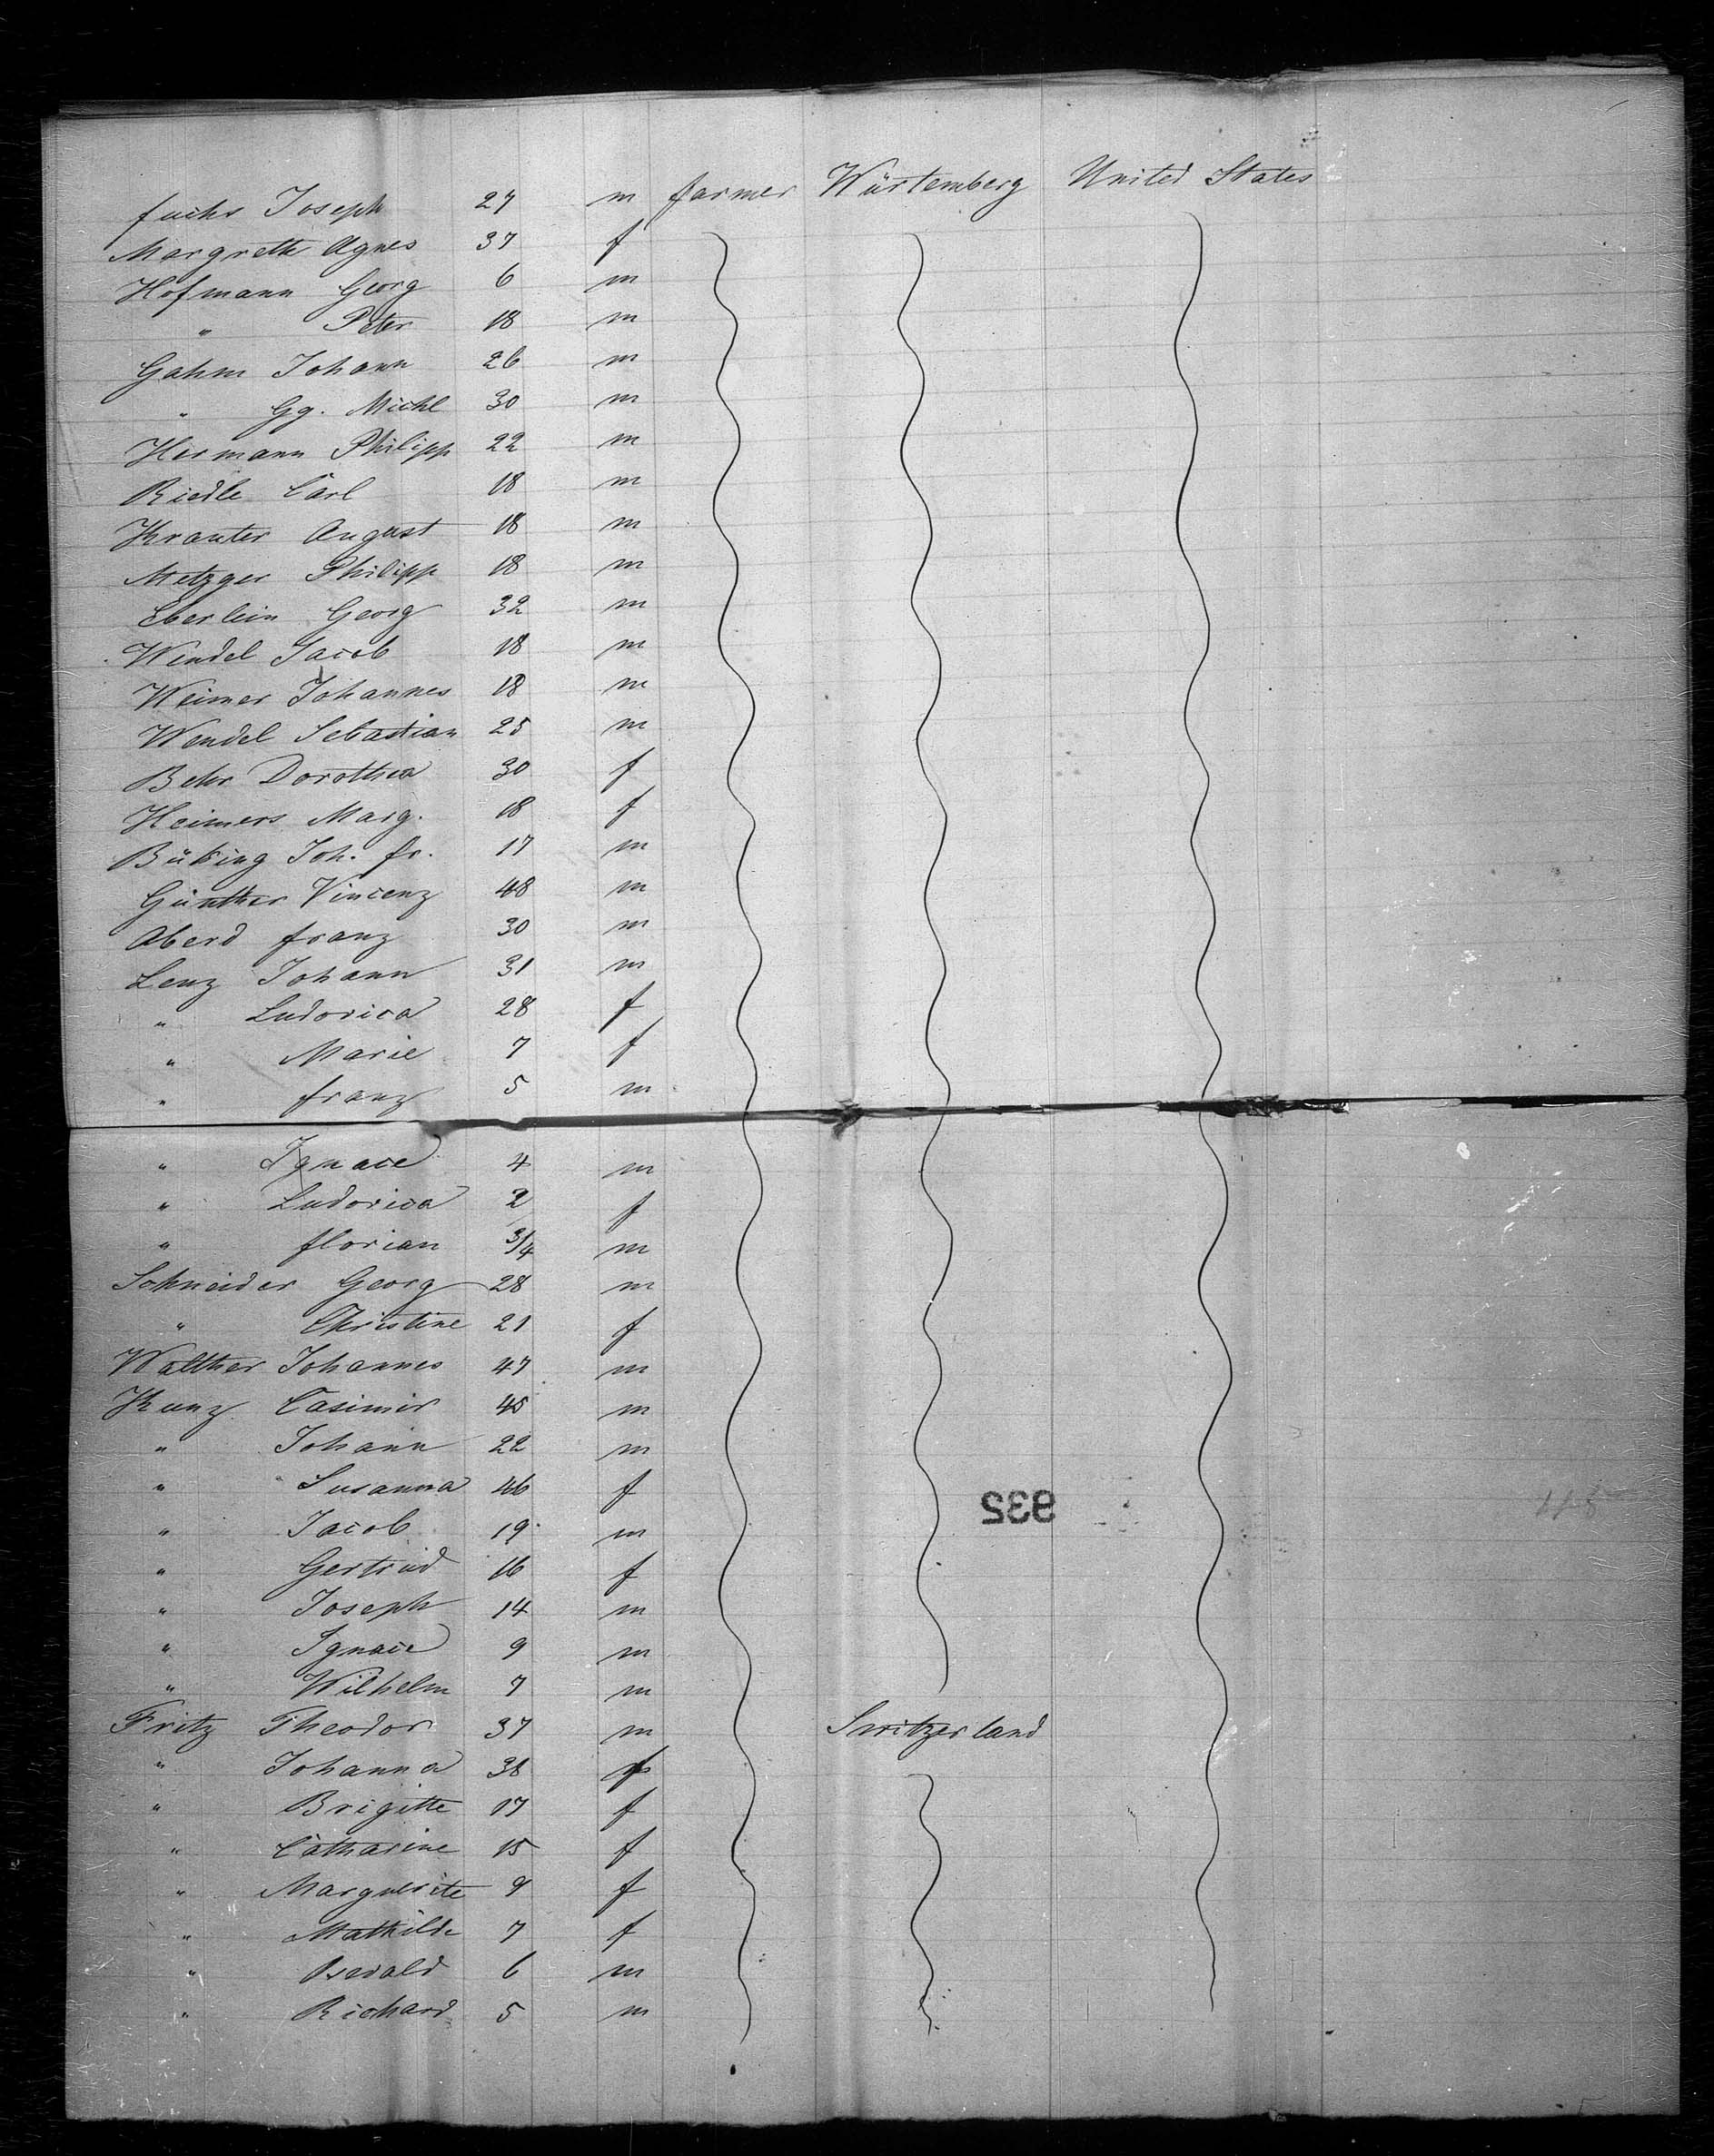 fuchs Joseph 27 m farmer Würtemberg United States
Margreth Agnes 37 f
Hofmann Georg 6 m
" Peter 18 m
Gahm Johann 26 m
" Gg. Michl 30 m
Hermann Philipp 22 m
Riedle Carl 18 m
Krauter August 18 m
Metzger Philipp 18 m
Eberlein Georg 32 m
Wendel Jacob 18 m
Weimer Johannes 18 m
Wendel Sebastian 25 m
Behr Dorothea 30 f
Heimers Marg. 18 f
Büking Joh. fr. 17 m
Günther Vincenz 48 m
Aberd franz 30 m
Lenz Johann 31 m
" Ludovica 28 f
" Marie 7 f
" franz 5 m
" Ignace 4 m
" Ludovica 2 f
" florian 3/4 m
Schneider Georg 28 m
" Christine 21 f
Walther Johannes 47 m
Kunz Casimir 45 m
" Johann 22 m
" Susanna 46 f
932
" Jacob 19 m
" Gertrud 16 f
" Joseph 14 m
" Ignace 9 m
" Wilhelm 7 m
Fritz Theodor 37 m Switzerland
" Johanna 38 f
" Brigitte 17 f
" Catharine 15 f
" Marguerite 9 f
" Mathilde 7 f
" Oswald 6 m
" Richard 5 m